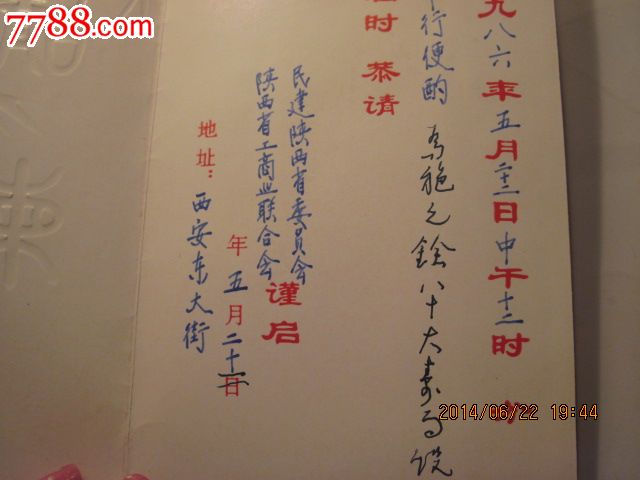 7788.com
九八六年五月二十二日中午十二时
行便酌 为施元铨八十大寿而设
时 恭请
民建陕西省委员会
陕西省工商业联合会
谨启
年五月二十日
地址：西安东大街
2014/06/22 19:44